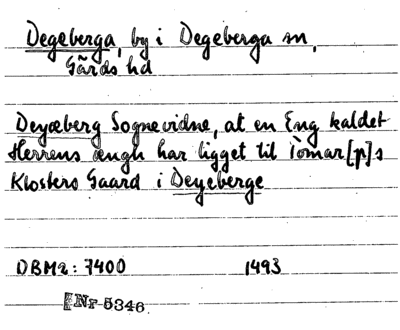 Degeberga, by i Degeberga sn,
Gärds hd
Deyæberg Sognevidne, at en Eng kaldet
Herrens ængh har ligget til Tomar[p]s
Klosters Gaard i Deyeberge
DBM2: 7400 1493
[Nr 5346